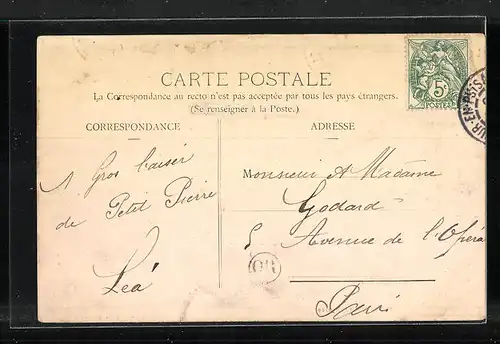 CARTE POSTALE
La Correspondance au recto n'est pas acceptée par tous les pays étrangers.
(Se renseigner à la Poste.)
CORRESPONDANCE
ADRESSE
5c
POSTES
1 Gros baiser
de Petit Pierre
Léa
Monsieur et Madame
Godard
5 Avenue de l'Opéra
Paris
OR